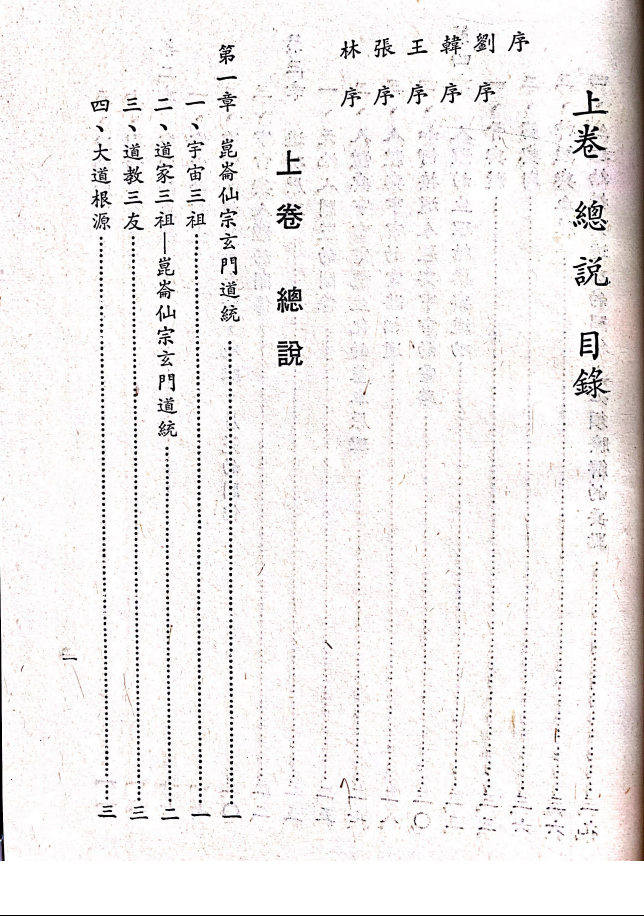 上卷 總說 目錄
序
劉序
韓序
王序
張序
林序
上卷 總說
第一章 崑崙仙宗玄門道統……一
一、宇宙三祖……一
二、道家三祖—崑崙仙宗玄門道統……二
三、道教三友……三
四、大道根源……三
一